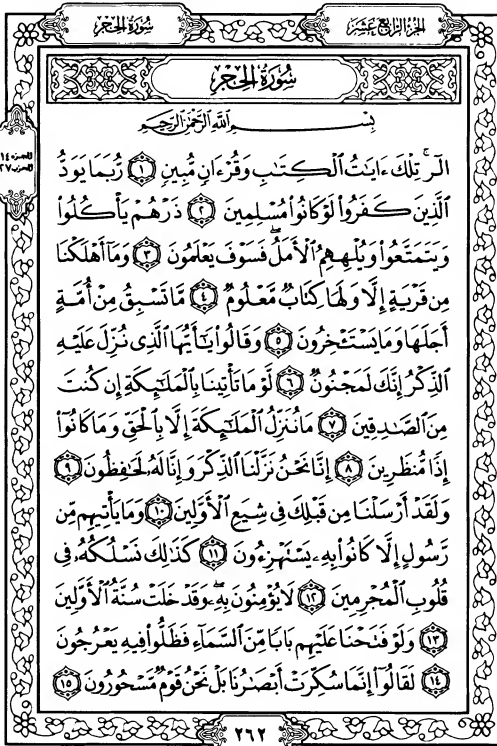 الجزء الرابع عشر
سورة الحجر
سُورَةُ الحِجْرِ
الجزء ١٤
الحزب ٢٧
بِسْمِ اللَّهِ الرَّحْمَٰنِ الرَّحِيمِ
الٓرۚ تِلْكَ ءَايَٰتُ ٱلْكِتَٰبِ وَقُرْءَانٍ مُّبِينٍ ١ رُّبَمَا يَوَدُّ
ٱلَّذِينَ كَفَرُوا۟ لَوْ كَانُوا۟ مُسْلِمِينَ ٢ ذَرْهُمْ يَأْكُلُوا۟
وَيَتَمَتَّعُوا۟ وَيُلْهِهِمُ ٱلْأَمَلُۖ فَسَوْفَ يَعْلَمُونَ ٣ وَمَآ أَهْلَكْنَا
مِن قَرْيَةٍ إِلَّا وَلَهَا كِتَابٌ مَّعْلُومٌ ٤ مَّا تَسْبِقُ مِنْ أُمَّةٍ
أَجَلَهَا وَمَا يَسْتَـْٔخِرُونَ ٥ وَقَالُوا۟ يَٰٓأَيُّهَا ٱلَّذِى نُزِّلَ عَلَيْهِ
ٱلذِّكْرُ إِنَّكَ لَمَجْنُونٌ ٦ لَّوْ مَا تَأْتِينَا بِٱلْمَلَٰٓئِكَةِ إِن كُنتَ
مِنَ ٱلصَّٰدِقِينَ ٧ مَا نُنَزِّلُ ٱلْمَلَٰٓئِكَةَ إِلَّا بِٱلْحَقِّ وَمَا كَانُوٓا۟
إِذًا مُّنظَرِينَ ٨ إِنَّا نَحْنُ نَزَّلْنَا ٱلذِّكْرَ وَإِنَّا لَهُۥ لَحَٰفِظُونَ ٩
وَلَقَدْ أَرْسَلْنَا مِن قَبْلِكَ فِى شِيَعِ ٱلْأَوَّلِينَ ١٠ وَمَا يَأْتِيهِم مِّن
رَّسُولٍ إِلَّا كَانُوا۟ بِهِۦ يَسْتَهْزِءُونَ ١١ كَذَٰلِكَ نَسْلُكُهُۥ فِى
قُلُوبِ ٱلْمُجْرِمِينَ ١٢ لَا يُؤْمِنُونَ بِهِۦۖ وَقَدْ خَلَتْ سُنَّةُ ٱلْأَوَّلِينَ
١٣ وَلَوْ فَتَحْنَا عَلَيْهِم بَابًا مِّنَ ٱلسَّمَآءِ فَظَلُّوا۟ فِيهِ يَعْرُجُونَ
١٤ لَقَالُوٓا۟ إِنَّمَا سُكِّرَتْ أَبْصَٰرُنَا بَلْ نَحْنُ قَوْمٌ مَّسْحُورُونَ ١٥
٢٦٢